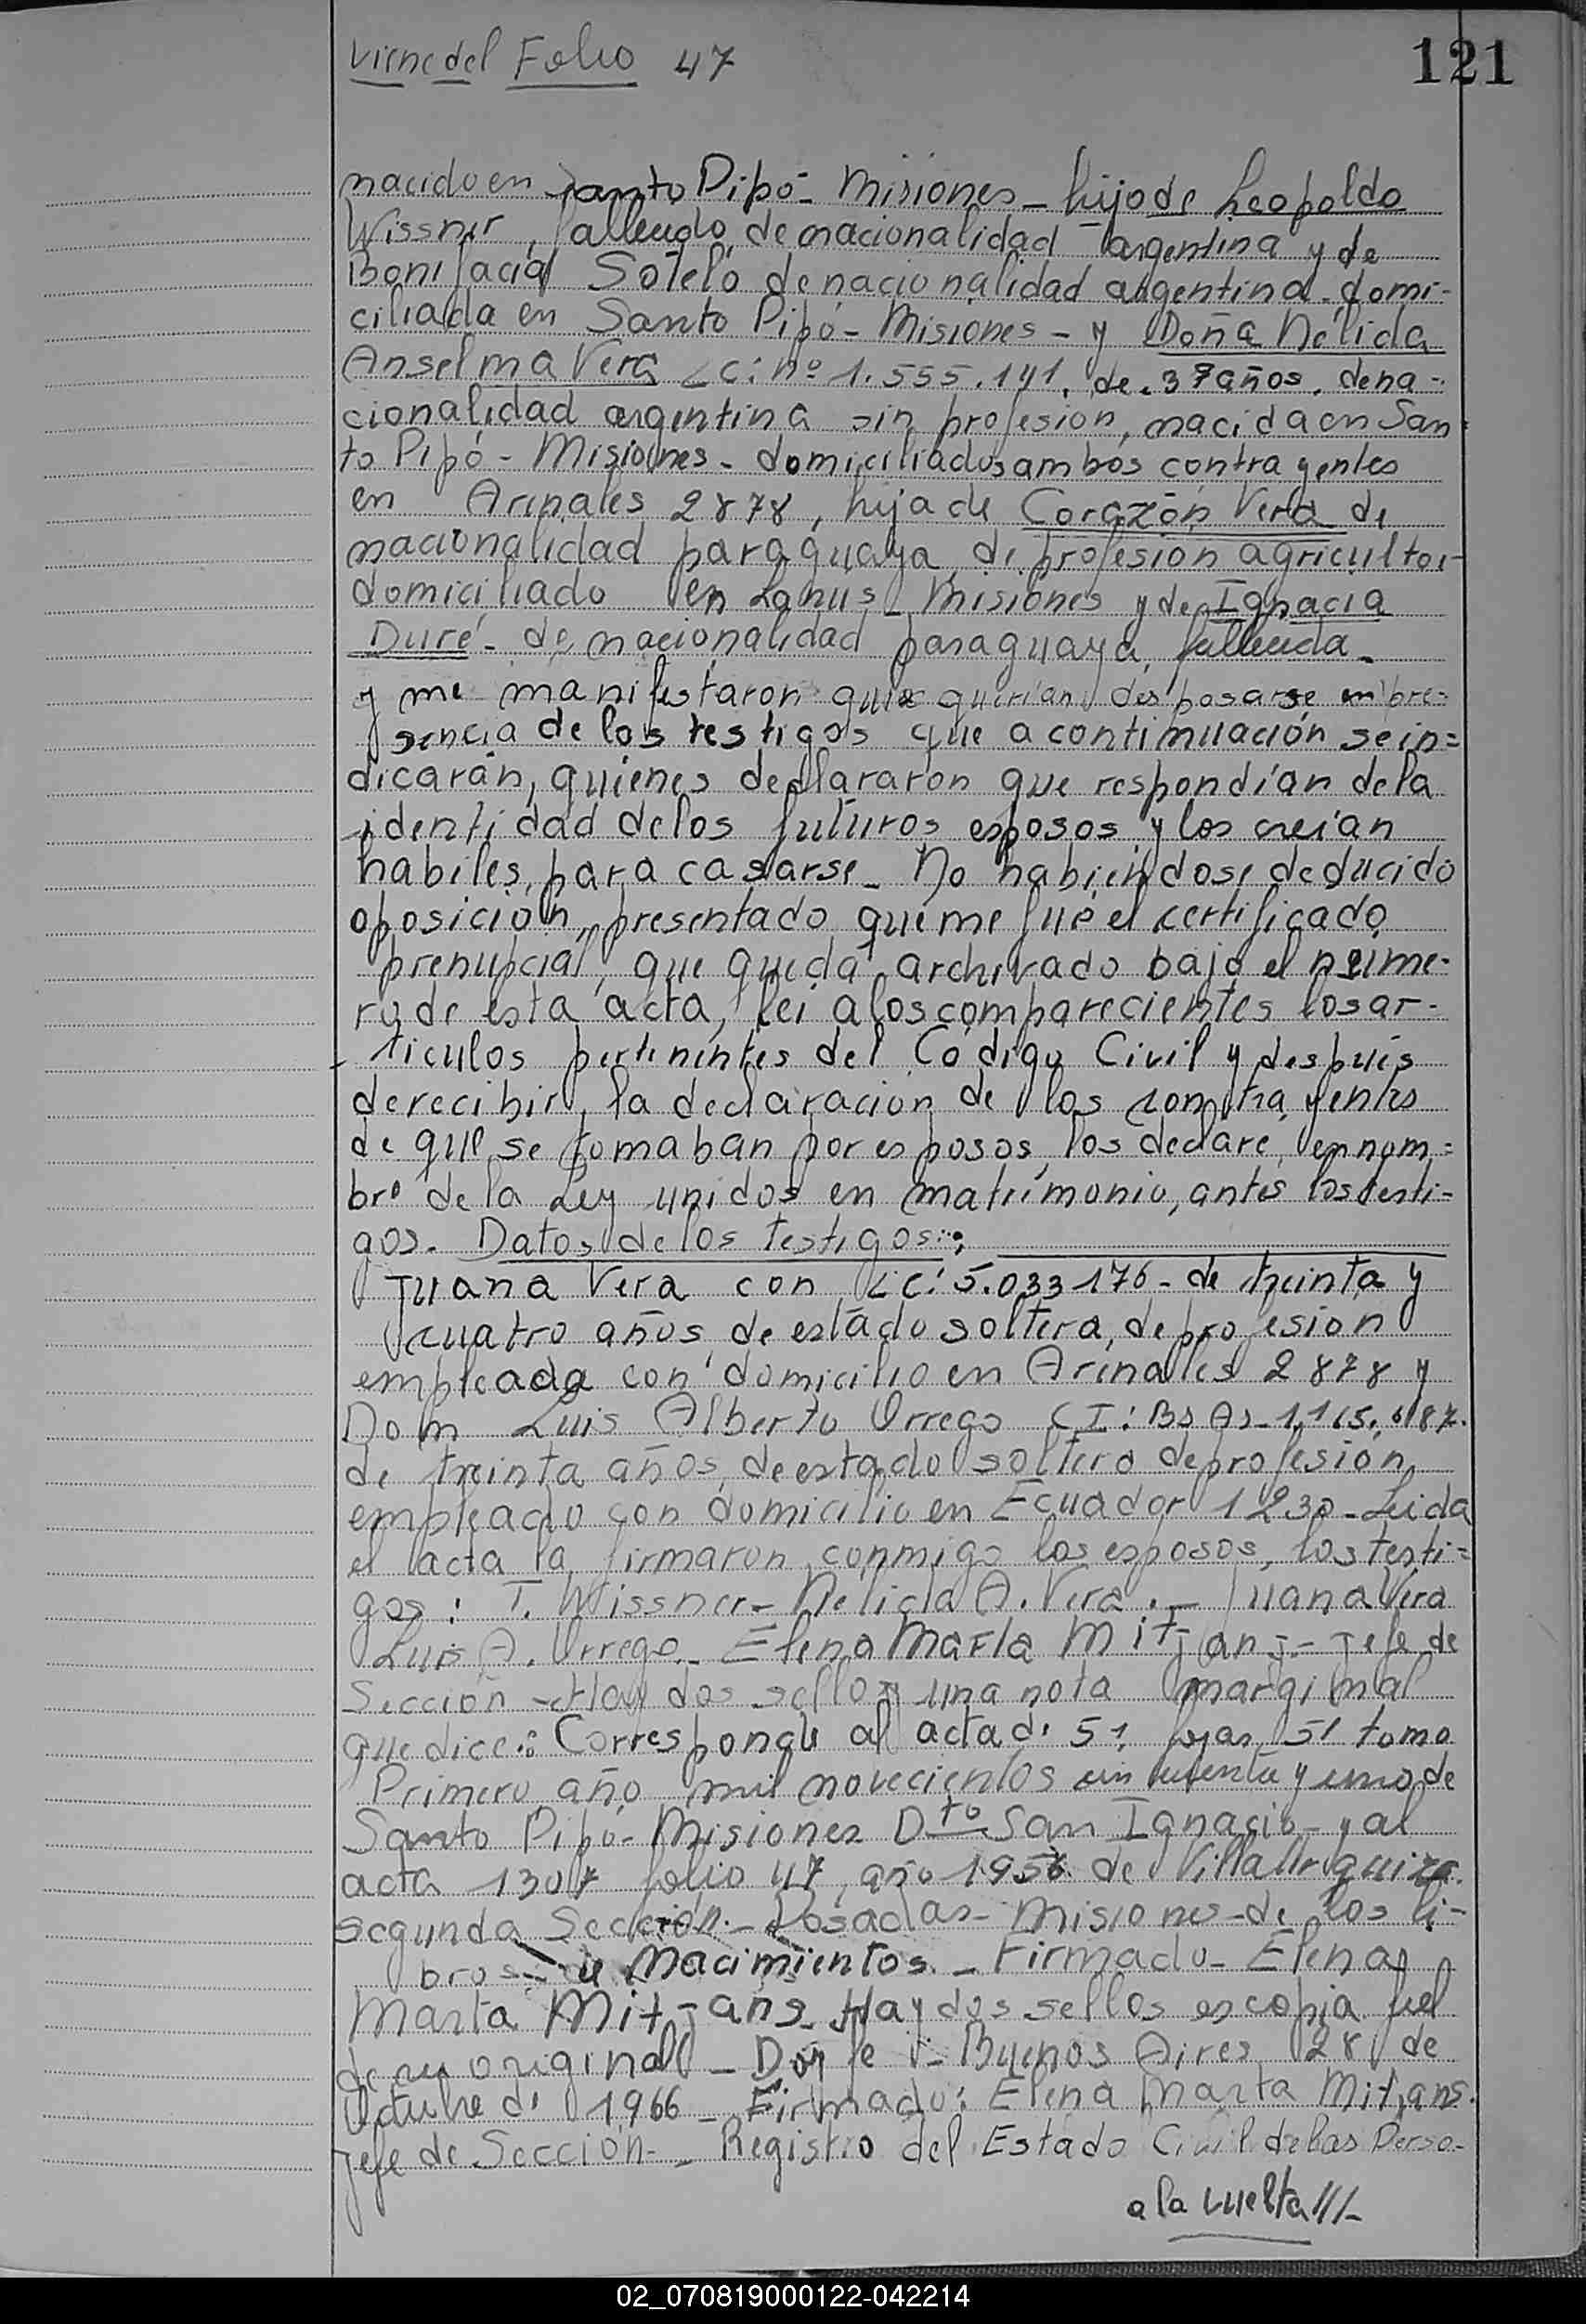 Viene del Folio 47
121
nacido en Santo Pipó - Misiones - hijo de Leopoldo
Wissner, fallecido, de nacionalidad argentina y de
Bonifacia Sotelo de nacionalidad argentina - domi-
ciliada en Santo Pipó - Misiones - y Doña Nélida
Anselma Vera LC: nº 1.555.141. de 37 años. de na-
cionalidad argentina sin profesión, nacida en San
to Pipó - Misiones - domiciliados ambos contrayentes
en Arenales 2878, hija de Corazón Vera de
nacionalidad paraguaya, de profesión agricultor -
domiciliado en Lanus - Misiones y de Ignacia
Duré - de nacionalidad paraguaya, fallecida -
y me manifestaron que querían desposarse en pre=
sencia de los testigos que a continuación se in=
dicarán, quienes declararon que respondían de la
identidad de los futuros esposos y los creían
habiles para casarse - No habiéndose deducido
oposición, presentado que me fué el certificado
prenupcial, que queda archivado bajo el núme-
ro de esta acta, leí a los comparecientes los ar-
tículos pertinentes del Código Civil y después
de recibir la declaración de los contrayentes
de que se tomaban por esposos, los declaré, en nom=
bre de la Ley unidos en matrimonio, antes los testi=
gos. Datos de los testigos:
Juana Vera con LC: 5.033176 - de treinta y
cuatro años, de estado soltera, de profesión
empleada con domicilio en Arenales 2878 y
Don Luis Alberto Orrego CI: Bs As - 1.165.
de treinta años, de estado soltero de profesión
empleado con domicilio en Ecuador 1230 - Leida
el acta la firmaron conmigo los esposos, los testi=
gos: T. Wissner - Nelida A. Vera . - Juana Vera
Luis A. Orrego - Elena Marta Mitjans - Jefe de
Sección - Hay dos sellos y una nota marginal
que dice: Corresponde al acta de 51 fojas 51 tomo
Primero año mil novecientos y uno de
Santo Pipó - Misiones Dto San Ignacio - y al
acta 1307 folio 47, año de Villa Urquiza
segunda Sección - Posadas - Misiones - de los li-
bros Nacimientos. - Firmado - Elena
Marta Mitjans - Hay dos sellos es copia fiel
de su original - Doy fe - Buenos Aires 28 de
Octubre de 1966 - Firmado: Elena Marta Mitjans.
Jefe de Sección - Registro del Estado Civil de las Perso-
a la vuelta ///-
02_070819000122-042214